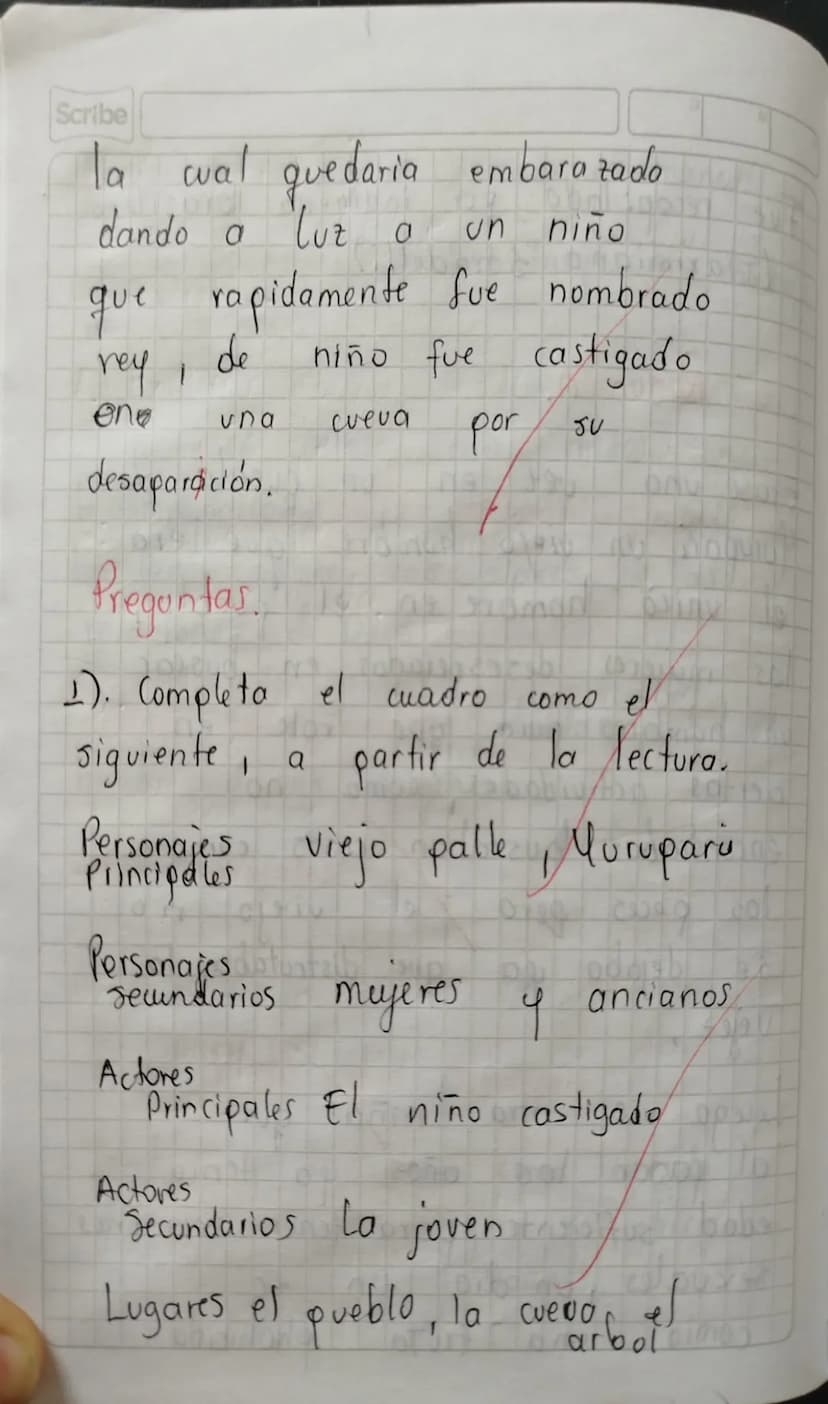 Scribe
la cual quedaria embarazado
dando a luz a un niño
que rapidamente fue nombrado
rey, de niño fue castigado
en una cueva por su
desaparición.
Preguntas.
1). Completa el cuadro como el
siguiente, a partir de la lectura.
Personajes viejo palle, Yurupari
Principales
Personajes
secundarios mujeres y ancianos
Actores
Principales El niño castigado
Actores
Secundarios La joven
Lugares el pueblo, la cueva, el
arbol